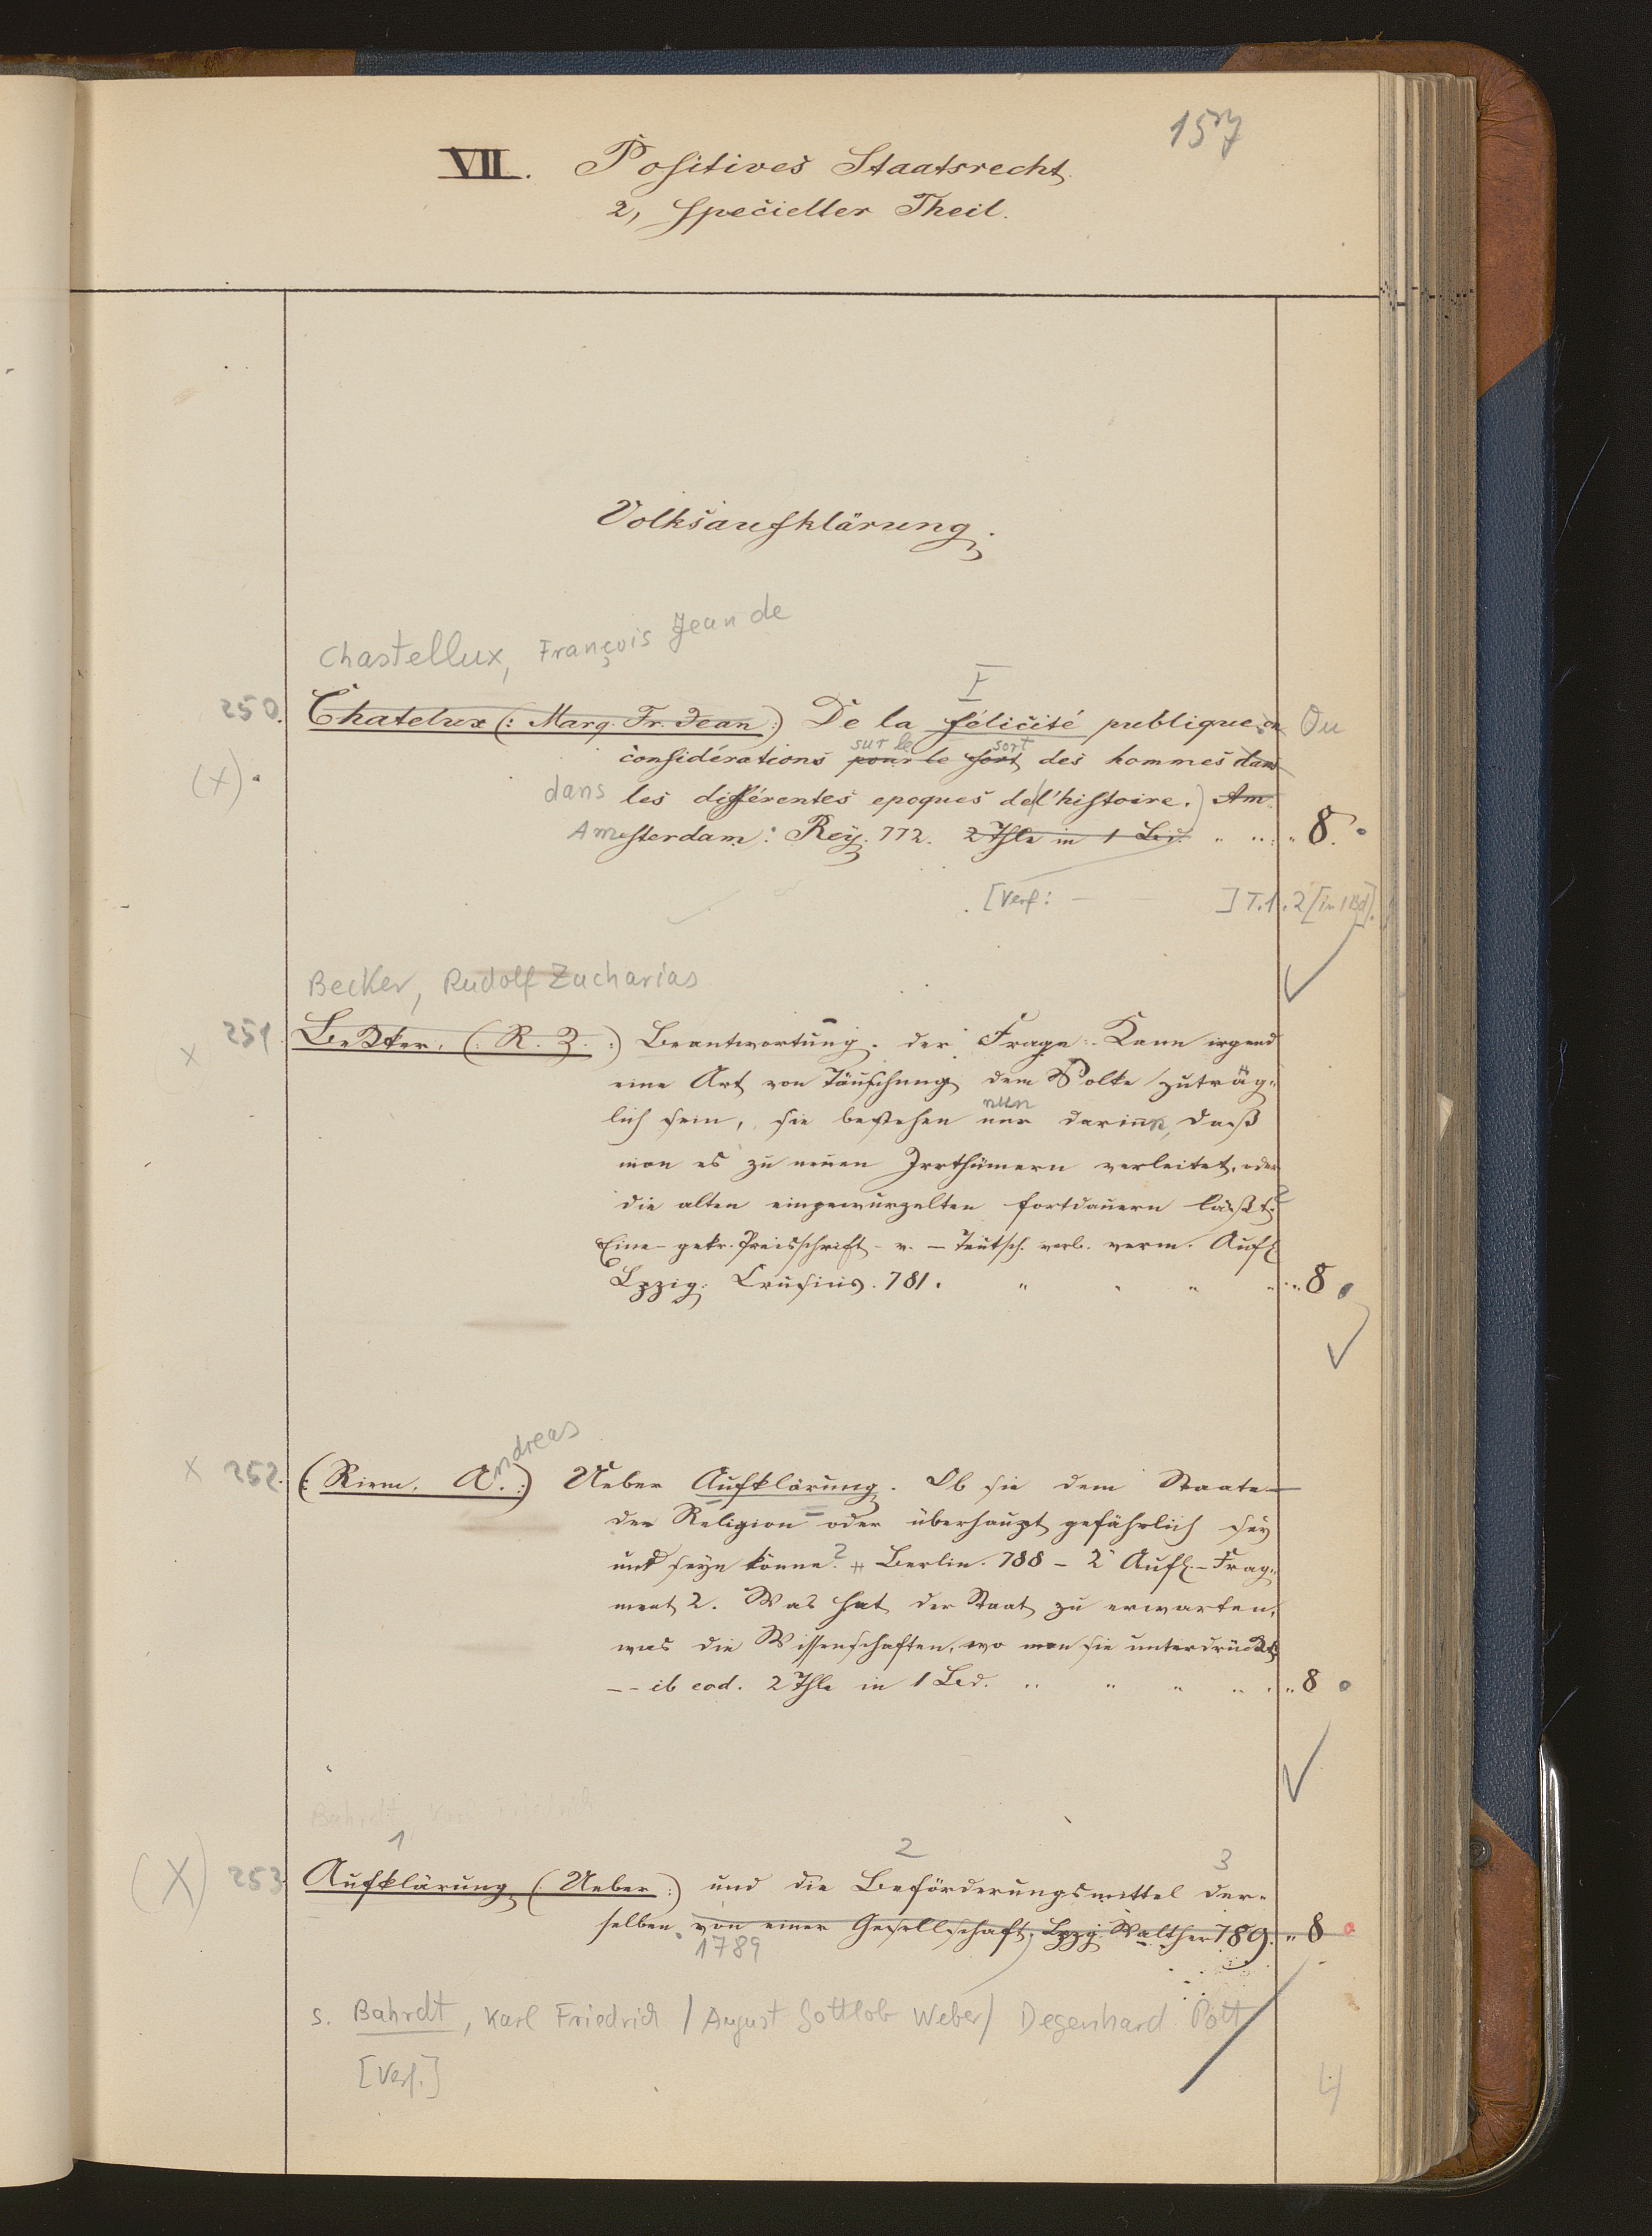 157
VII. Positives Staatsrecht.
2, specieller Theil.
Volksaufklärung.
Chastellux, François Jean de
I
250. Chatelux (: Marq. Fr. Jean :) De la félicité publique ou Ou
sur le sort
(x) considérations pour le sort des hommes dans
dans les différentes epoques de l'histoire. Am
Amsterdam: Rey. 772. 2 Thle in 1 Bd. " " " 8.
[Verf: — — ] T. 1. 2 [in 1 Bd].
Becker, Rudolf Zacharias
x 251 Becker. (: R. Z. :) Beantwortung. der Frage: Kann irgend
eine Art von Täuschung dem Volke zuträg=
nun
lich sein, sie bestehen nur darinn, daß
man es zu neuen Irrthümern verleitet, oder
die alten eingewurzelten fortdauern läßt?
Eine gekr. Preisschrift - v. - Teutsch. verb. verm. Aufl
Lpzig: Crusius. 781. " " " 8
x 252. (: Riem. Andreas :) Ueber Aufklärung. Ob sie dem Staate –
der Religion – oder überhaupt gefährlich sey
und seyn könne? + Berlin. 788 – 2 Aufl. – Frag=
ment 2. Was hat der Staat zu erwarten,
was die Wissenschaften, wo man sie unterdrückt
-- ib eod. 2 Thle in 1 Bd. " " " " 8
Bahrdt, Karl Friedrich
1 2 3
(X) 253 Aufklärung (Ueber :) und die Beförderungsmittel der=
selben von einer Gesellschaft. Lpzg. Walther 789. " 8
1789
s. Bahrdt, Karl Friedrich / August Gottlob Weber / Degenhard Pott
[Verf.]
4